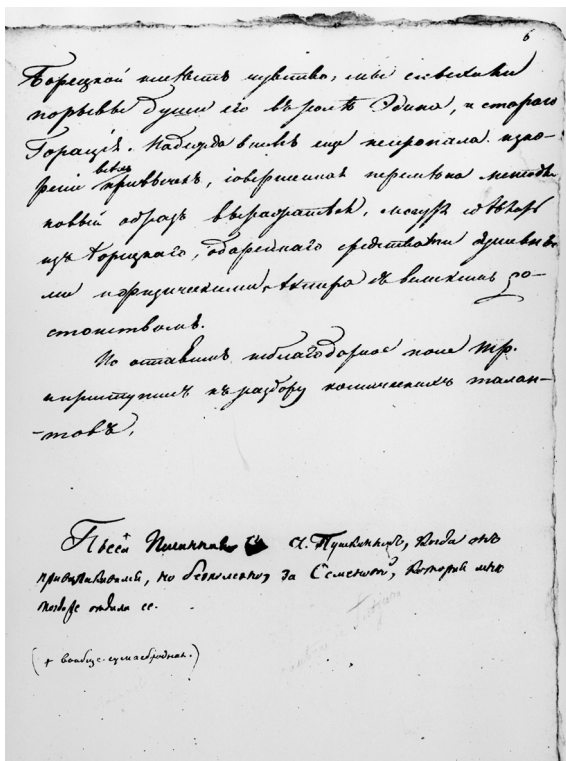 6
Борецкой имѣетъ чувство, мы слыхали
порывы души его въ ролѣ Эдипа, и стараго
Горація. Надежда въ немъ еще не пропала. Иско-
всѣхъ
реніе привычекъ, совершенная перемѣна методы
новый образъ выражаться, могутъ сдѣлать
изъ Борецкаго, одареннаго средствами душевны-
ми и физическими, Актера съ великимъ до-
стоинствомъ.
Но оставимъ неблагодарное поле тр.
и приступимъ къ разбору комическихъ талан-
-товъ.
Піеса писанная А. Пушкинымъ, когда онъ
приволакивался, но безполезно, за Семеновой, которая мнѣ
тогда же отдала ее.
(+ вообще сумасбродная.)